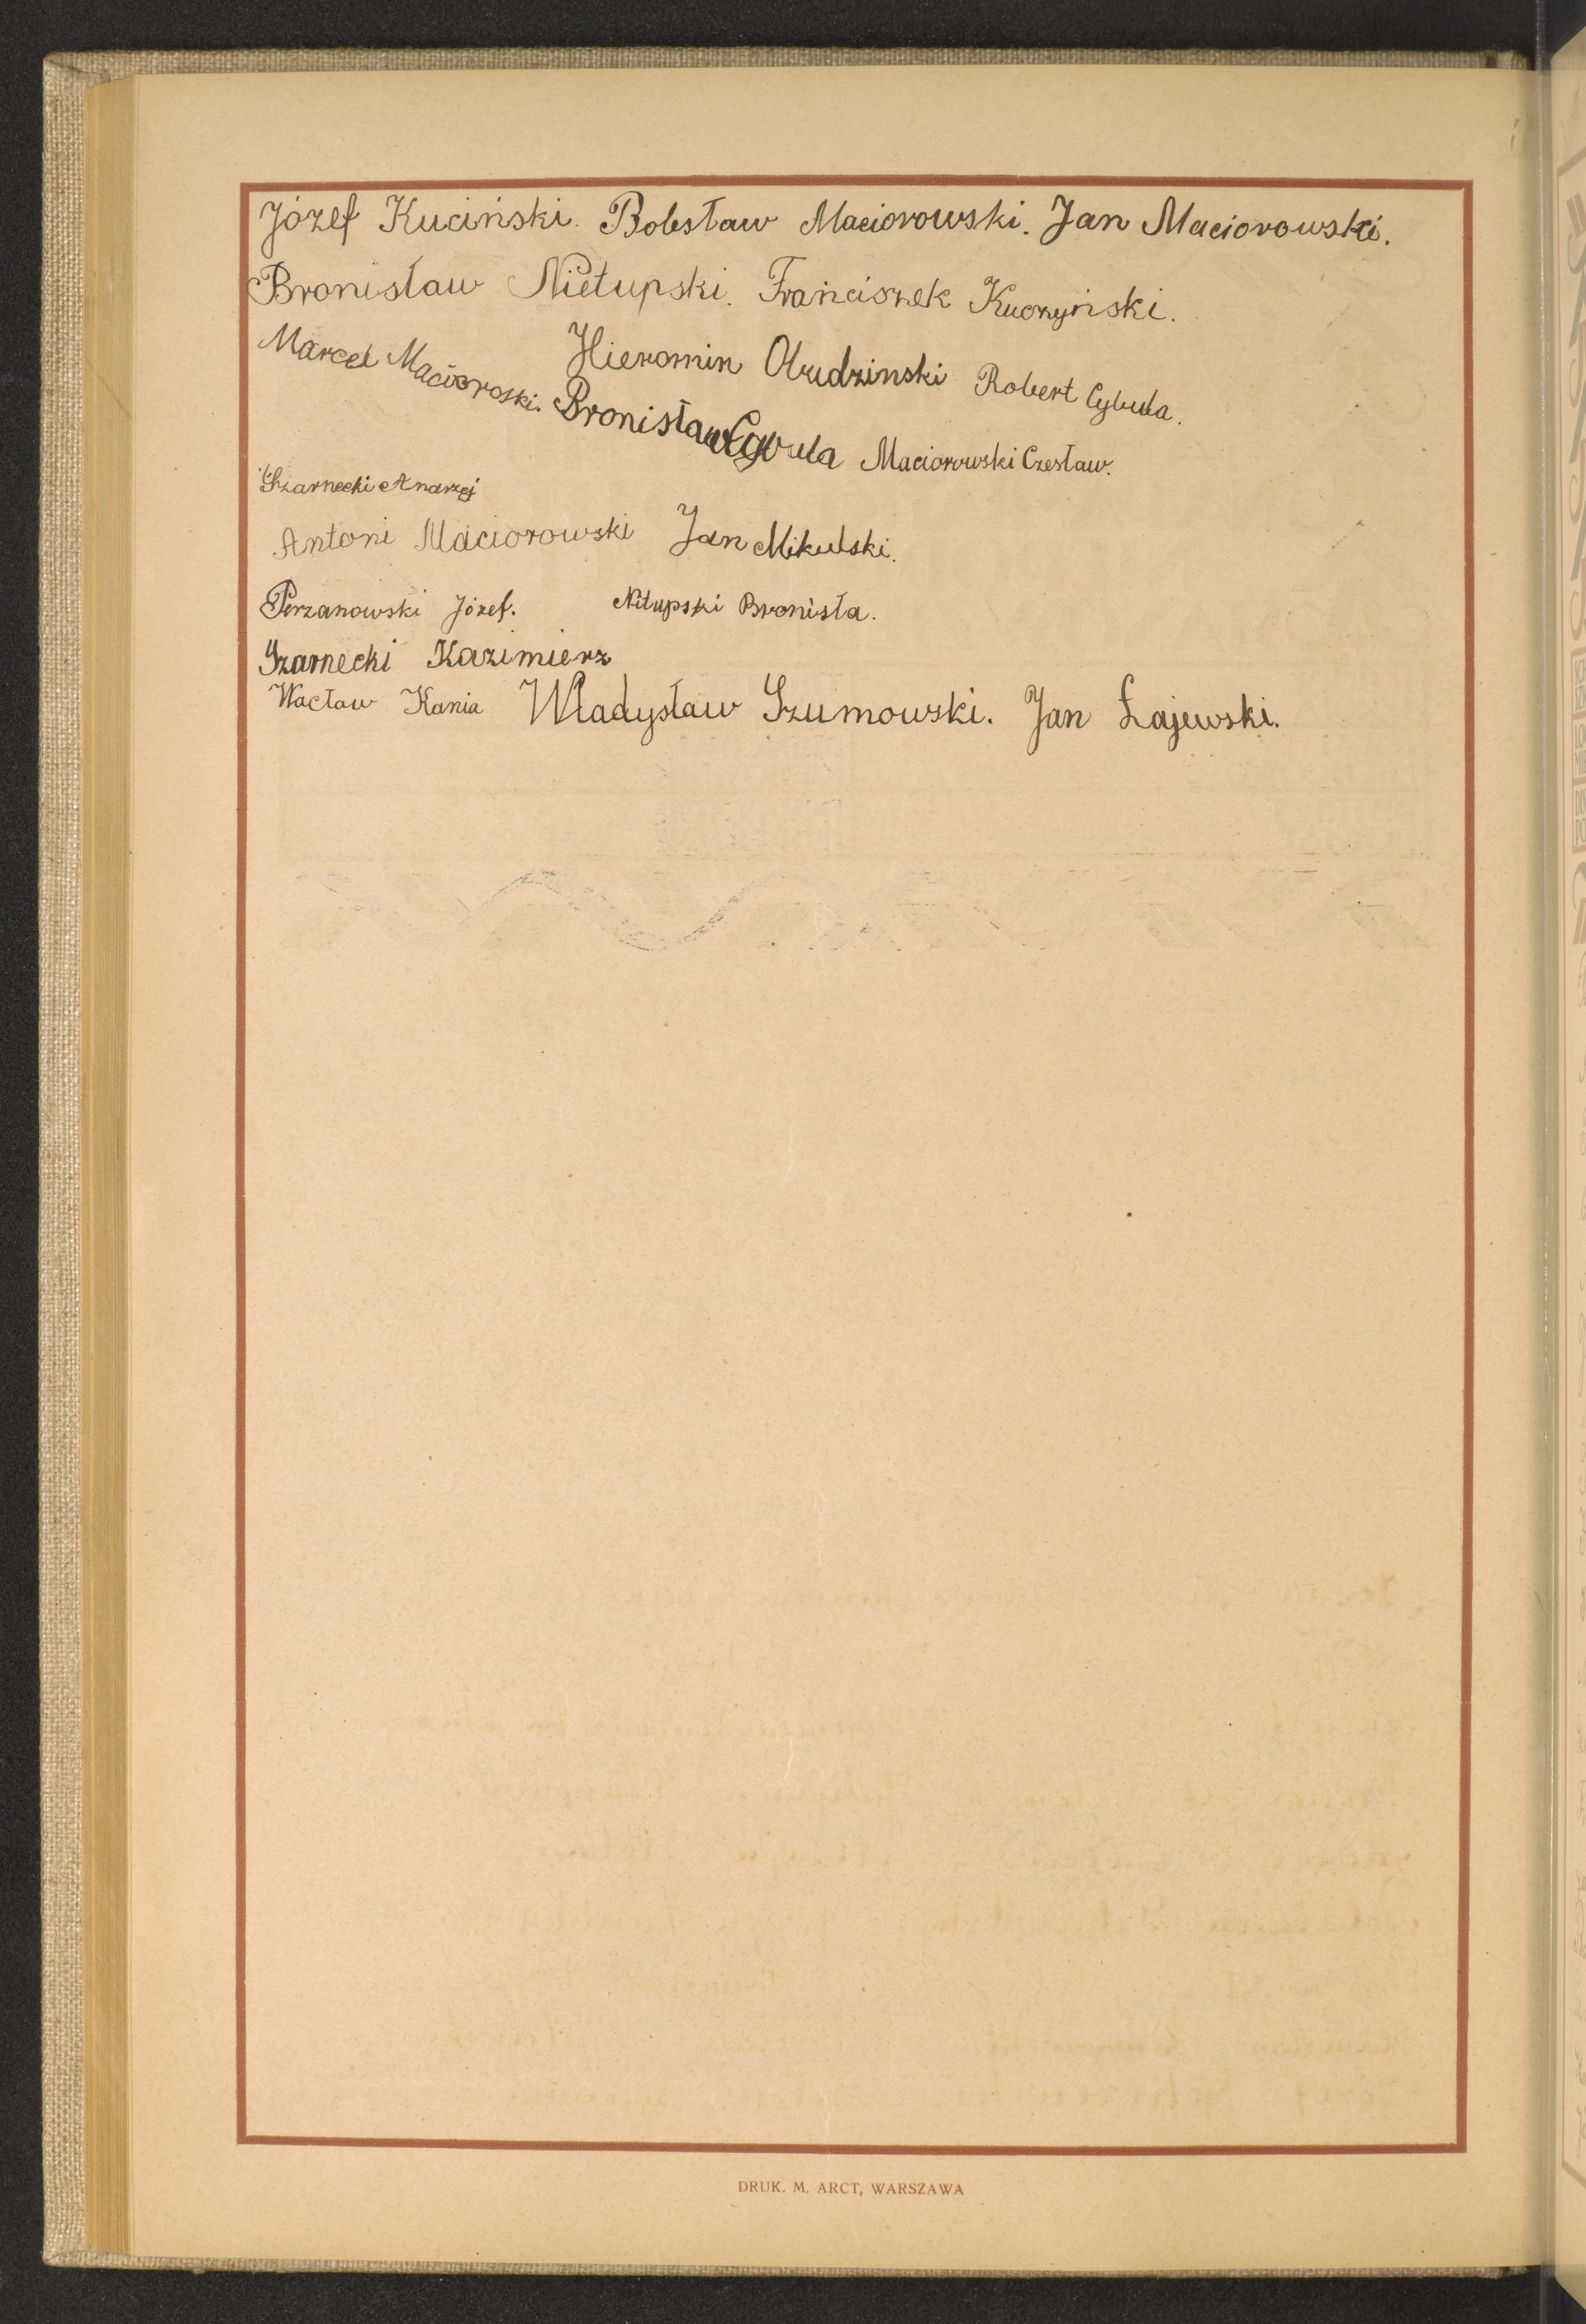 Józef Kuciński. Bolesław Maciorowski. Jan Maciorowski.
Bronisław Nietupski. Franciszek Kuczyński.
Marcel Macioroski. Hieromin Obudzinski Robert Cybula.
Bronisław Cybula Maciorowski Czesław.
Szarnecki Andrzej
Antoni Maciorowski Jan Mikulski.
Perzanowski Józef. Nitupski Bronisła.
Szarnecki Kazimierz
Wacław Kania Władysław Szumowski. Jan Łajewski.
DRUK. M. ARCT, WARSZAWA